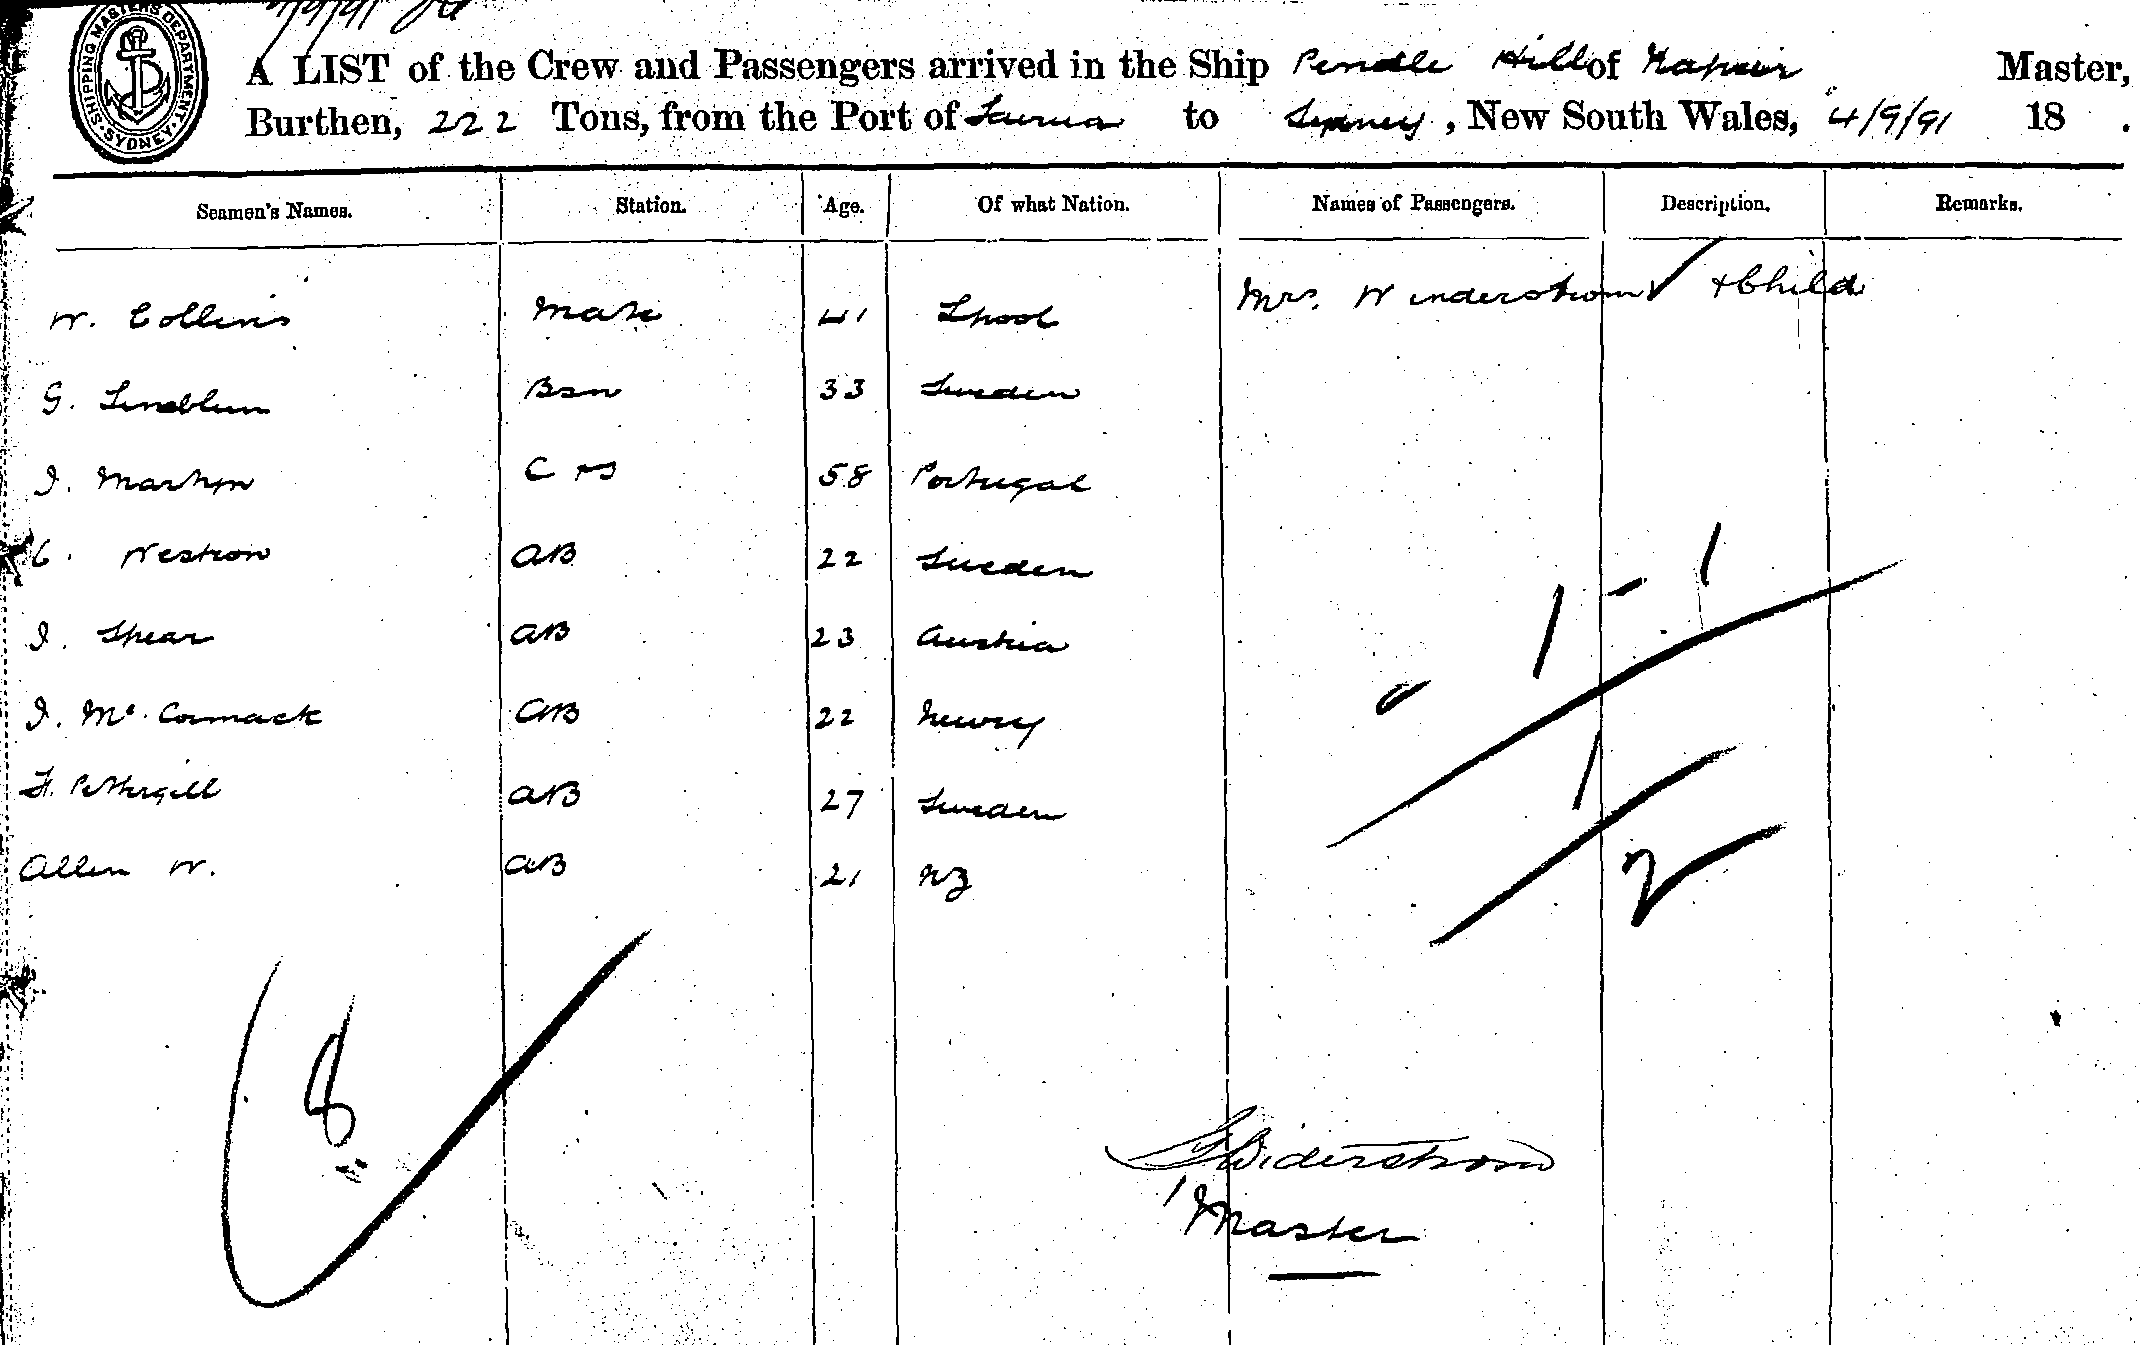 7/9/91
SHIPPING MASTERS DEPARTMENT. SYDNEY
A LIST of the Crew and Passengers arrived in the Ship Pendle Hill of Napier Master,
Burthen, 222 Tons, from the Port of to Sydney, New South Wales, 4/9/91 18 .
Seamen's Names. Station. Age. Of what Nation. Names of Passengers. Description. Remarks.
W. Collins Mate 41 Lpool Mrs. Winderstrom & Child
G. Lindblum Bsn 33 Sweden
J. Martyn C & S 58 Portugal
C. Westron AB 22 Sweden
J. Shear AB 23 Austria
J. Mc. Cormack AB 22 Newry
F. Pethergill AB 27 Sweden
Allen W. AB 21 NZ
1 - 1
1
2
8
Widerstrom
Master